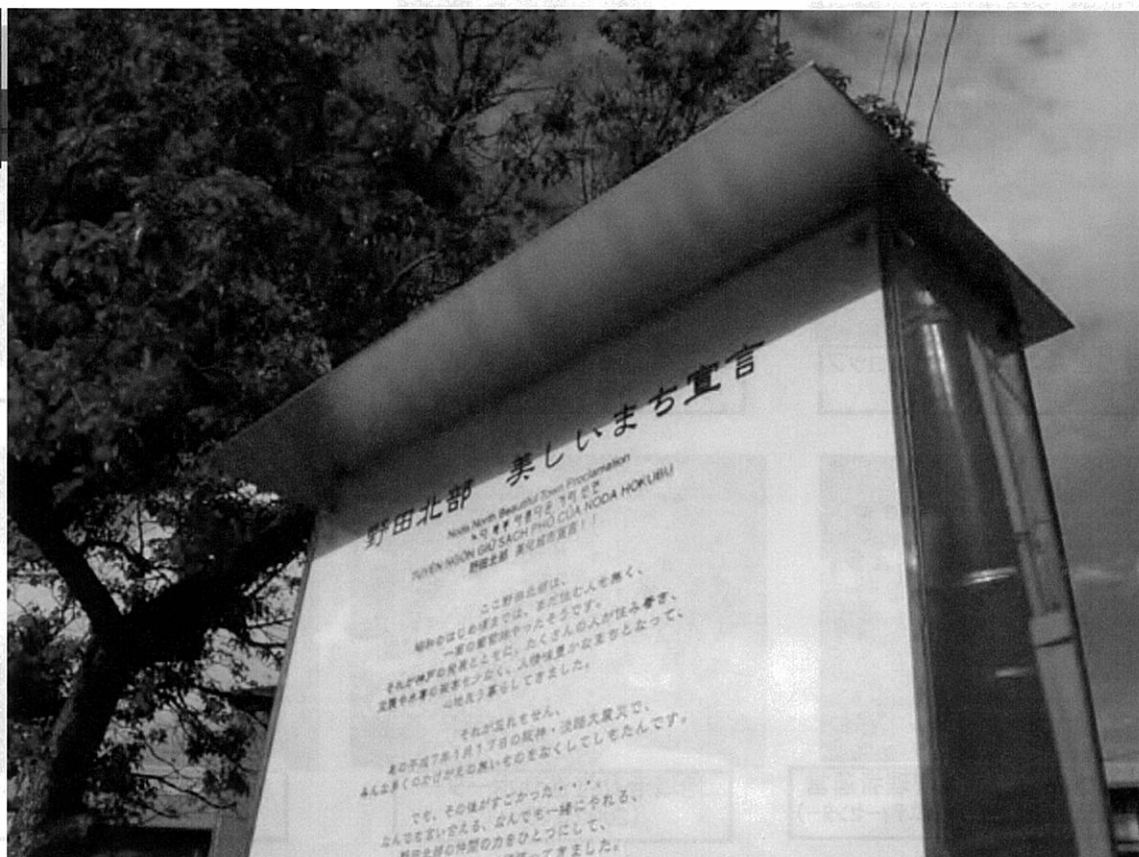 野田北部 美しいまち宣言
Noda North Beautiful Town Proclamation
노다 북부 아름다운 거리 선언
TUYÊN NGÔN GIỮ SẠCH PHỐ CỦA NODA HOKUBU
野田北部 美化城市宣言!!
ここ野田北部は、
昭和のはじめ頃までは、まだ住む人も無く、
一面の葡萄畑やったそうです。
それが神戸の発展とともに、たくさんの人が住み着き、
も少なく、人情味豊かなまちとなって、
心地よう暮らしてきました。
それが忘れもせん、
あの平成7年1月17日の阪神・淡路大震災で、
みんな多くのかけがえの無いものをなくしてしもたんです。
でも、その後がすごかった・・・。
なんでも言い合える、なんでも一緒にやれる、
野田北部の仲間の力をひとつにして、
ってきました。